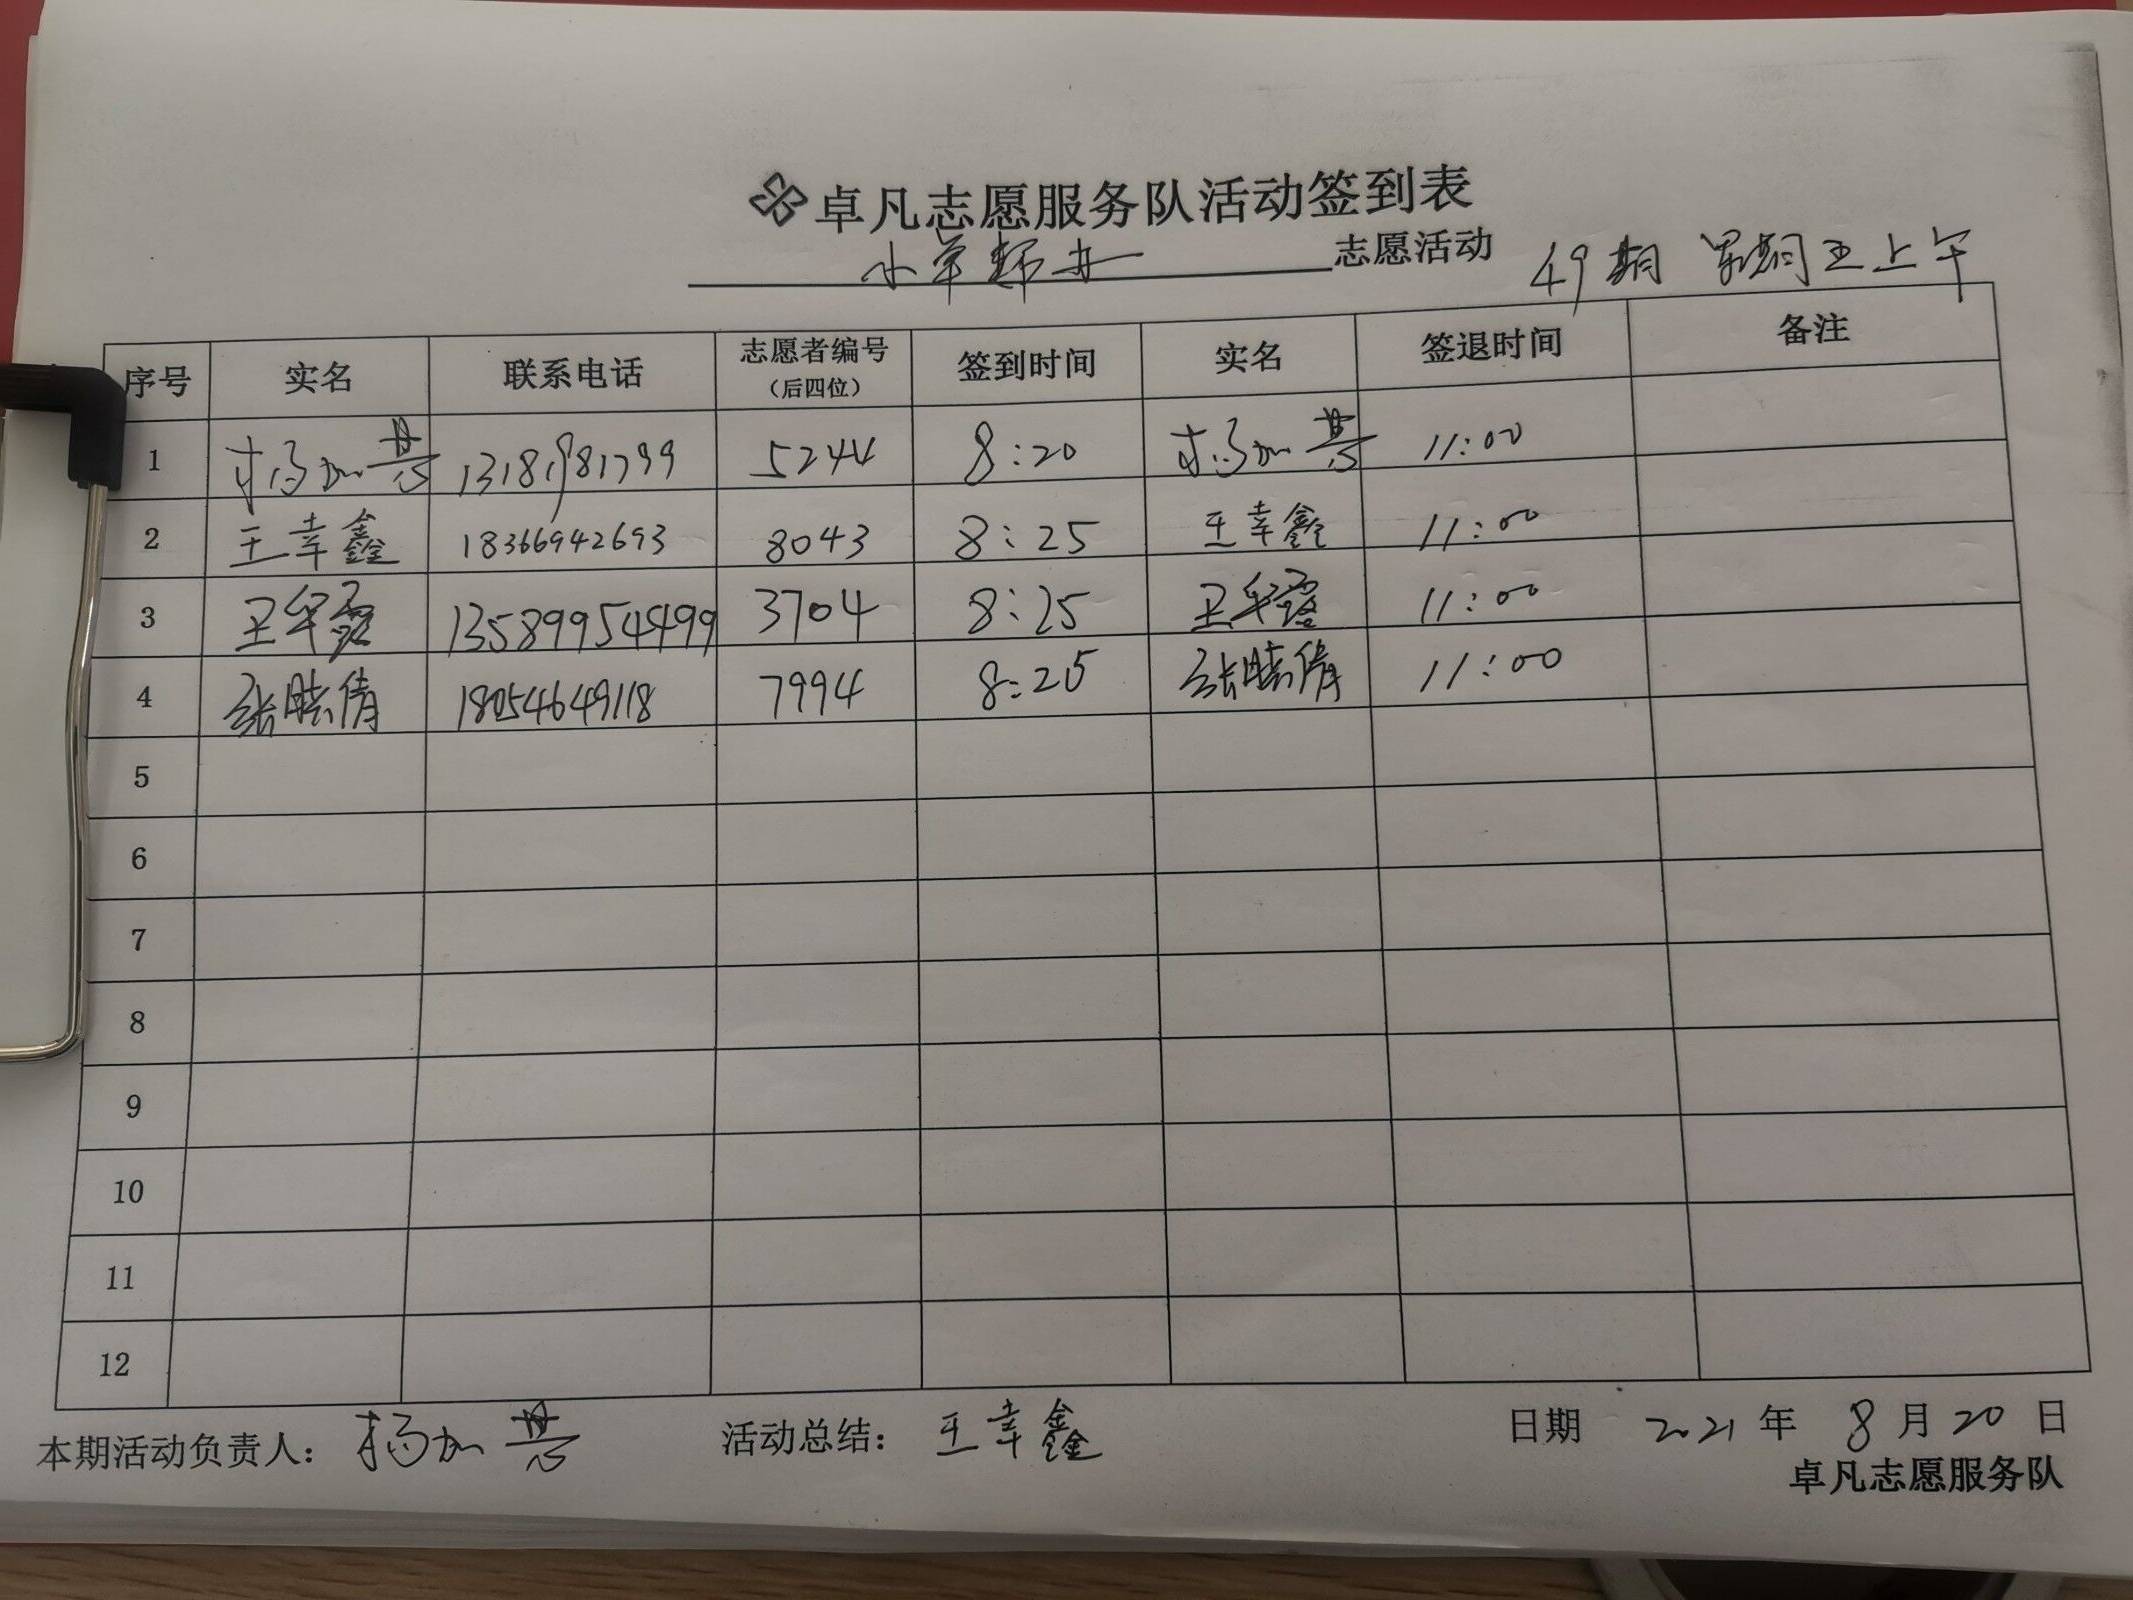 卓凡志愿服务队活动签到表
小草帮办 志愿活动 49期 星期五上午
序号 实名 联系电话 志愿者编号（后四位） 签到时间 实名 签退时间 备注
1 杨加慧 13181981799 5244 8:20 杨加慧 11:00
2 王幸鑫 18366942693 8043 8:25 王幸鑫 11:00
3 王华露 13589954499 3704 8:25 王华露 11:00
4 张晓倩 18054649118 7994 8:25 张晓倩 11:00
5
6
7
8
9
10
11
12
本期活动负责人： 杨加慧 活动总结： 王幸鑫 日期 2021 年 8 月 20 日
卓凡志愿服务队